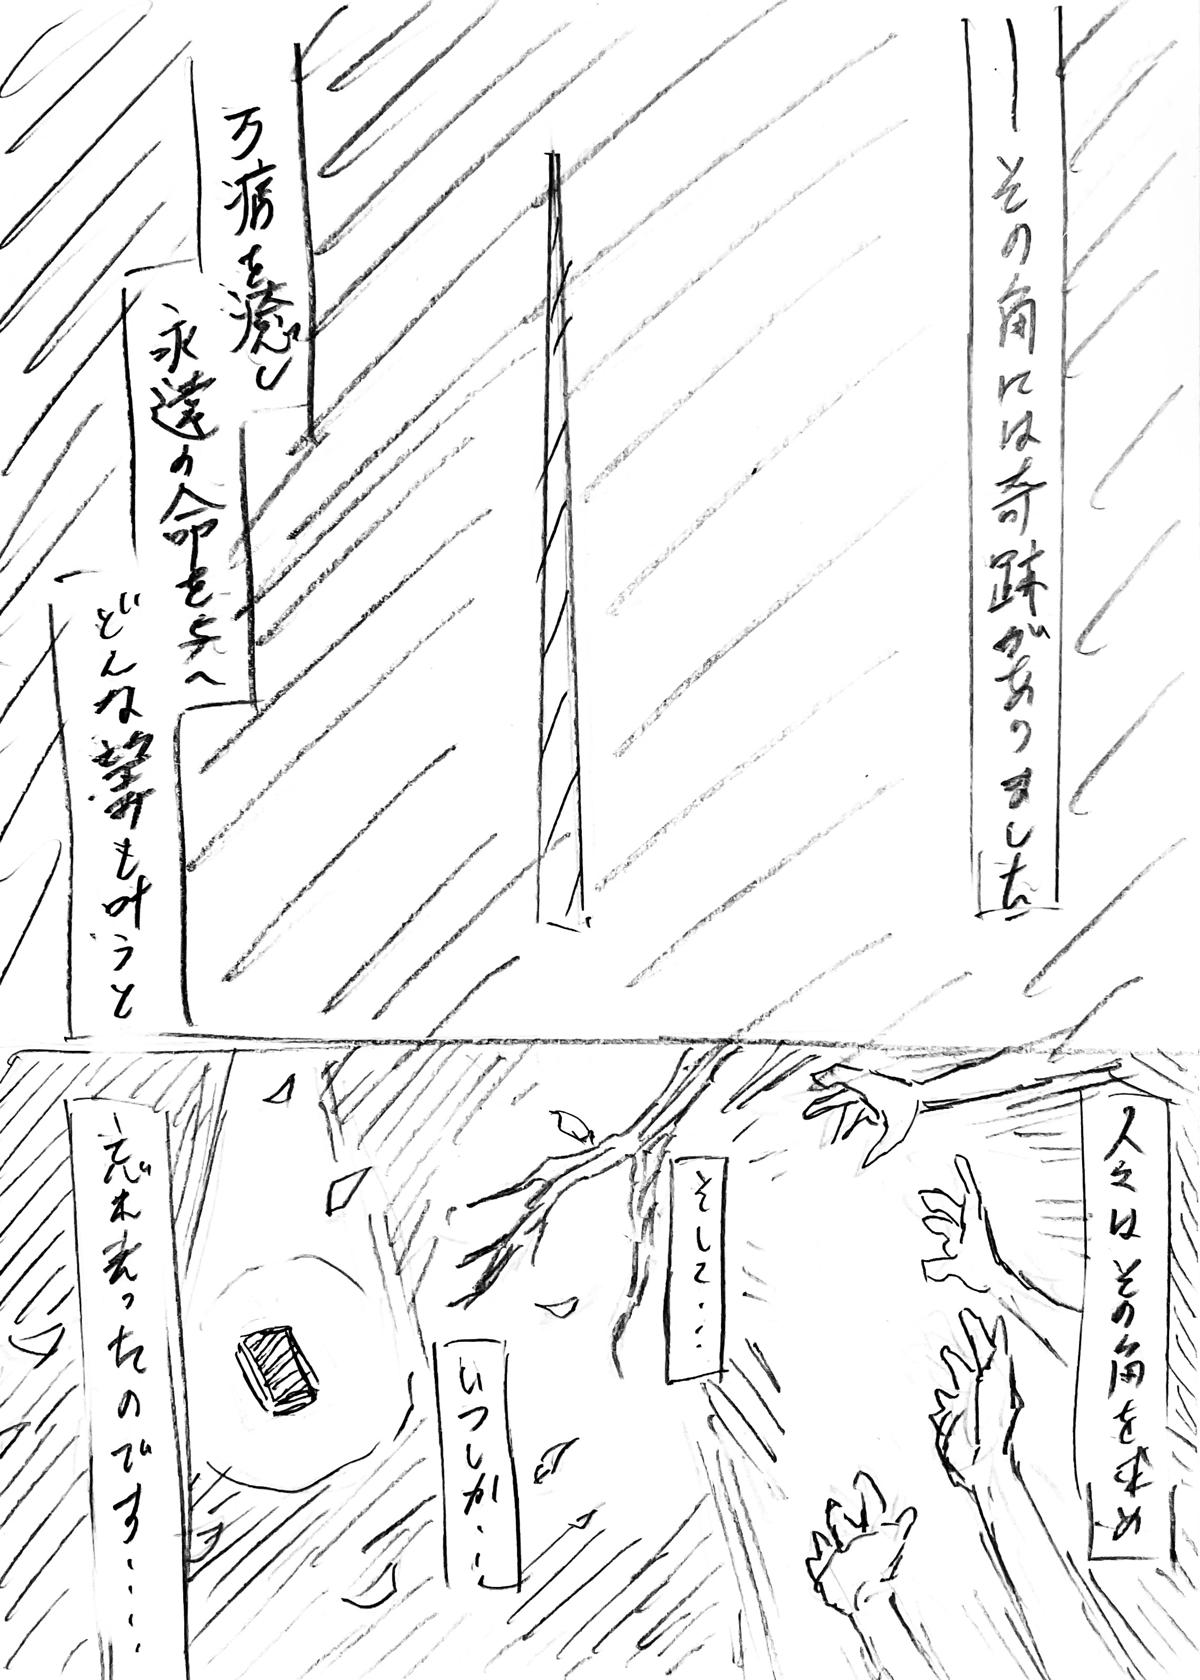 ―その角には奇跡がありました
万病を癒し
永遠の命を与へ
どんな望みも叶うと
人々はその角を求め
そして…
いつしか…
忘れ去ったのです……